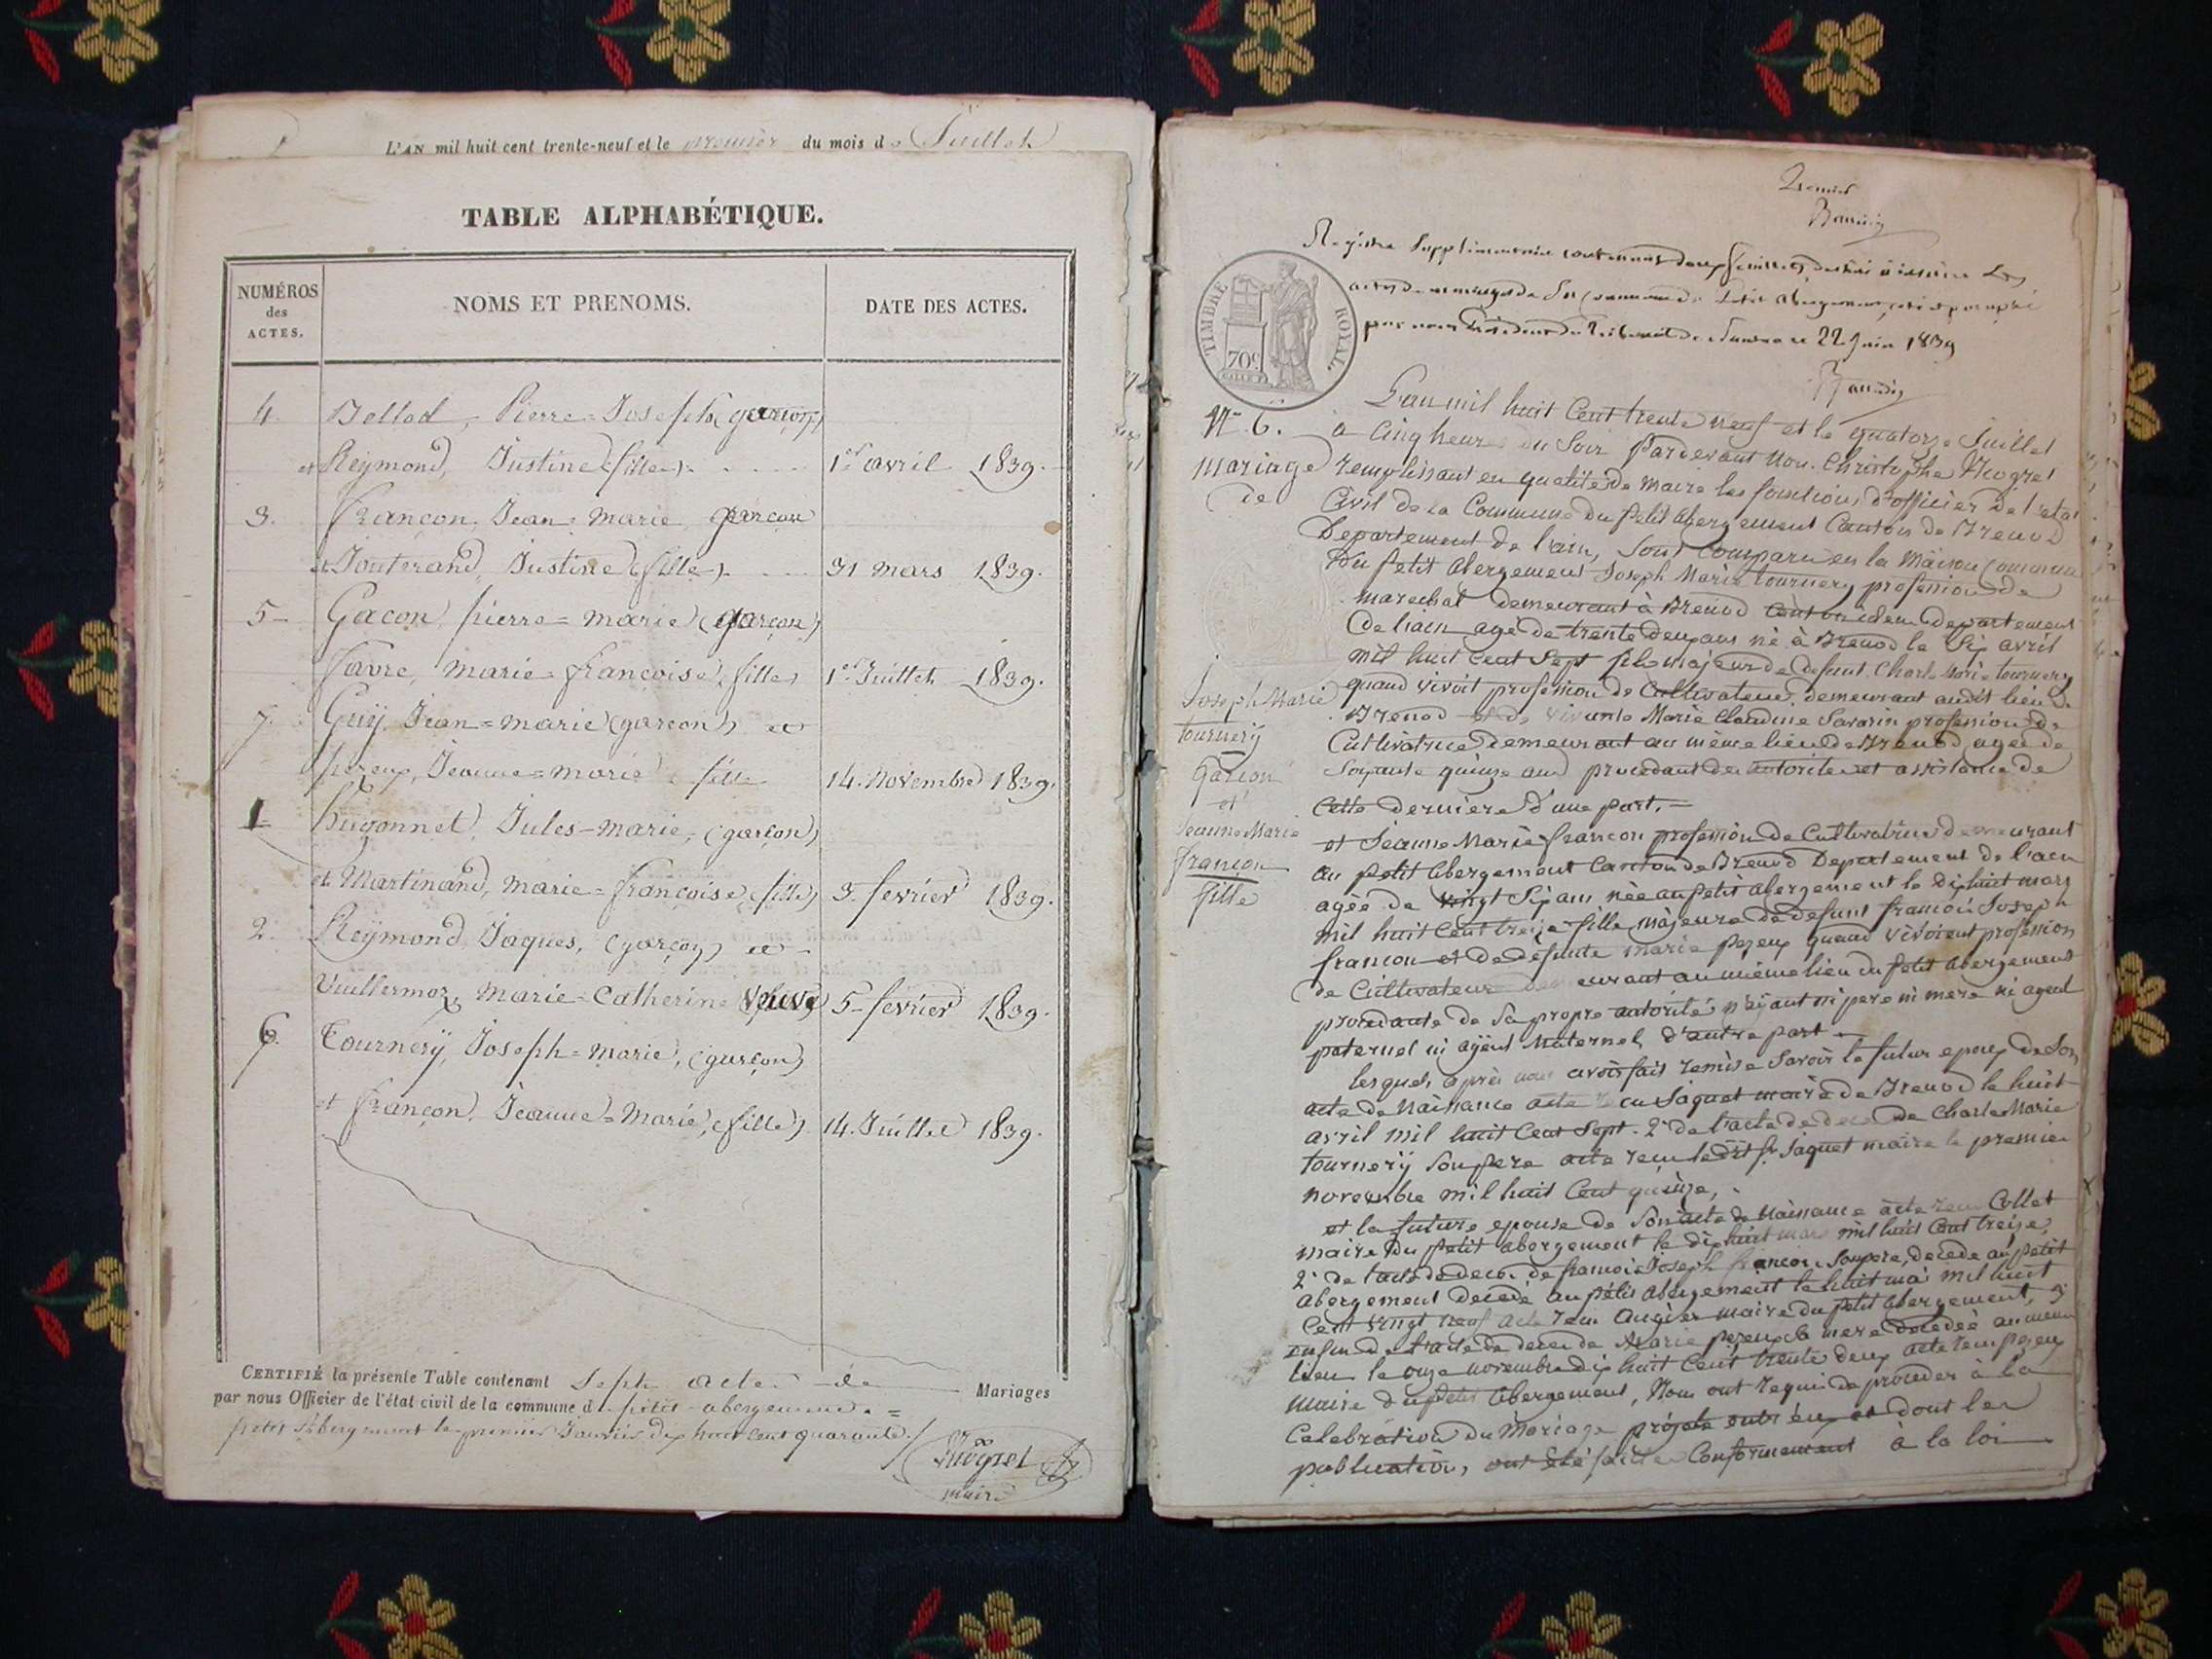 L'AN mil huit cent trente-neuf et le premier du mois de Juillet
TABLE ALPHABÉTIQUE.
NUMÉROS des ACTES.
NOMS ET PRENOMS.
DATE DES ACTES.
4. Bellod, Pierre=Joseph (garçon)
et Reymond, Justine (fille) 1er avril 1839.
3. françon, Jean=Marie, garçon
et Jouterand, Justine (fille) 31 mars 1839.
5 Gacon, pierre=marie (garçon)
favre, marie=françoise, fille 1er Juillet 1839.
7. Guÿ Jean=marie (garçon) et
pezeux, Jeanne=marie fille 14. Novembre 1839.
1 hugonnet, Jules-marie, (garçon)
et Martinand, marie=françoise, (fille) 3. fevrier 1839.
2. Reÿmond, Jaques, (garçon) et
Vuillermoz, marie=Catherine (veuve) 5 fevrier 1839.
6. Tournerÿ, Joseph=marie, (garçon)
et françon, Jeanne=Marie, (fille) 14. Juillet 1839.
CERTIFIÉ la présente Table contenant Sept actes de Mariages
par nous Officier de l'état civil de la commune d petit abergement
petit Abergement le premier Janvier dix huit cent quarante
maire
Registre Supplimentaire contenant deux feuillets destiné à inscrire les
actes de mariages de la Commune du Petit Abergement, coté et paraphé
par nous Président du Tribunal de Nantua ce 22 Juin 1839
TIMBRE ROYAL.
70c
N° 6.
mariage
de
Joseph Marie
tournerÿ
garçon
et
Jeanne Marie
françon
fille
L'an mil huit Cent trente neuf et le quatorze Juillet
à Cinq heures du Soir Pardevant Nous Christophe
remplissant en qualité de Maire les fonctions d'officier de l'etat
Civil de la Commune du petit Abergement Canton de Brenod
Departement de l'ain, Sont Comparu en la Maison Commune
Du petit Abergement Joseph Marie tournery profession de
marechal demeurant à Brenod Canton idem departement
de l'ain agé de trente deux ans né à Brenod le Six avril
mil huit Cent Sept fils majeur de defunt Charle Marie tournery
quand vivoit profession de Cultivateur demeurant audit lieu de
Brenod et de vivante Marie Claudine Savarin profession de
Cultivatrice demeurant au même lieu de Brenod agée de
Soixante quinze ans procedant de autorite et assistance de
Cette derniere d'une part.
et Jeanne Marie françon profession de Cultivatrice demeurant
au petit Abergement Canton de Brenod Departement de l'ain
agée de vingt Six ans née au petit abergement le dix huit mars
mil huit Cent treize fille majeure de defunt francois Joseph
francon et de defunte marie pezeux quand vivoient profession
de Cultivateur demeurant au même lieu du petit Abergement
procedante de Sa propre autorité n'aÿant ni pere ni mere ni ayeul
paternel ni aÿeul Maternel d'autre part
lesquels après nous avoir fait remise Savoir le futur epoux de Son
acte de Naissance acte recu Jaquet maire de Brenod le huit
avril mil huit Cent Sept. 2° de l'acte de deces de Charle Marie
tournerÿ Son pere acte recu ledit Jaquet maire le premier
novembre mil huit Cent quinze,
et la future epouse de Son acte de Naissance acte recu Collet
maire du petit abergement le dix huit mars mil huit Cent treize,
2° de l'acte de deces de francois Joseph françon Son pere, decede au petit
abergement decedé au petit abergement le huit mai mil huit
Cent vingt neuf acte recu maire du petit Abergement, 3°
enfin de l'acte de deces de Marie pezeux la mere decedée au meme
lieu le onze novembre dix huit Cent trente deux acte recu pezeux
Maire du petit Abergement, Nous ont requi de proceder à la
Celebration du Mariage projeté entr'eux et dont les
publications ont été faites Conformement à la loi